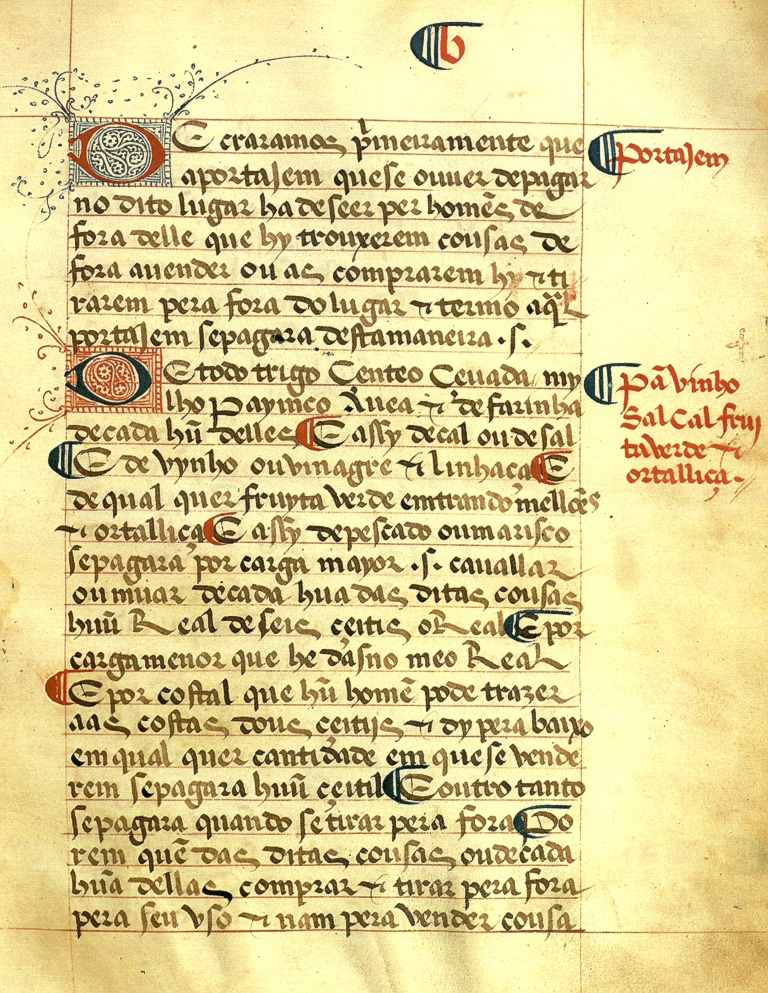 b
DEcraramos p̃meiramente que
aportajem quese ouuer depagar
no dito lugar ha deseer per homẽs de
fora delle que hy trouxerem cousas de
fora auender ou as comprarem hy ⁊ ti
rarem pera fora do lugar ⁊ termo aq̃l
portajem sepagara destamaneira .s.
DEtodo trigo Centeo Ceuada my
lho Paynco Auea ⁊ de farinha
decada hũ delles ¶ E assy decal oude sal
¶ E de vynho ou vinagre ⁊ linhaça ¶ E
de qual quer fruyta verde emtrando mellões
⁊ ortalliça ¶ E assy depescado ou marisco
sepagara por carga mayor .s. cauallar
ou muar decada hũa das ditas cousas
huũ Real de seis ceitis o Real ¶ E por
carga menor que he dasno meo Real
¶ E por costal que hũ homẽ pode trazer
aas costas dous ceitijs ⁊ dy pera baixo
em qual quer cantidade em quese vende
rem sepagara huũ ceitil ¶ E outro tanto
sepagara quando se tirar pera fora ¶ Po
rem quẽ das ditas cousas oudecada
hũa dellas comprar ⁊ tirar pera fora
pera seu vso ⁊ nam pera vender cousa
¶ Portajem
¶ Pã vinho
Sal Cal frui
ta verde ⁊
ortalliça.